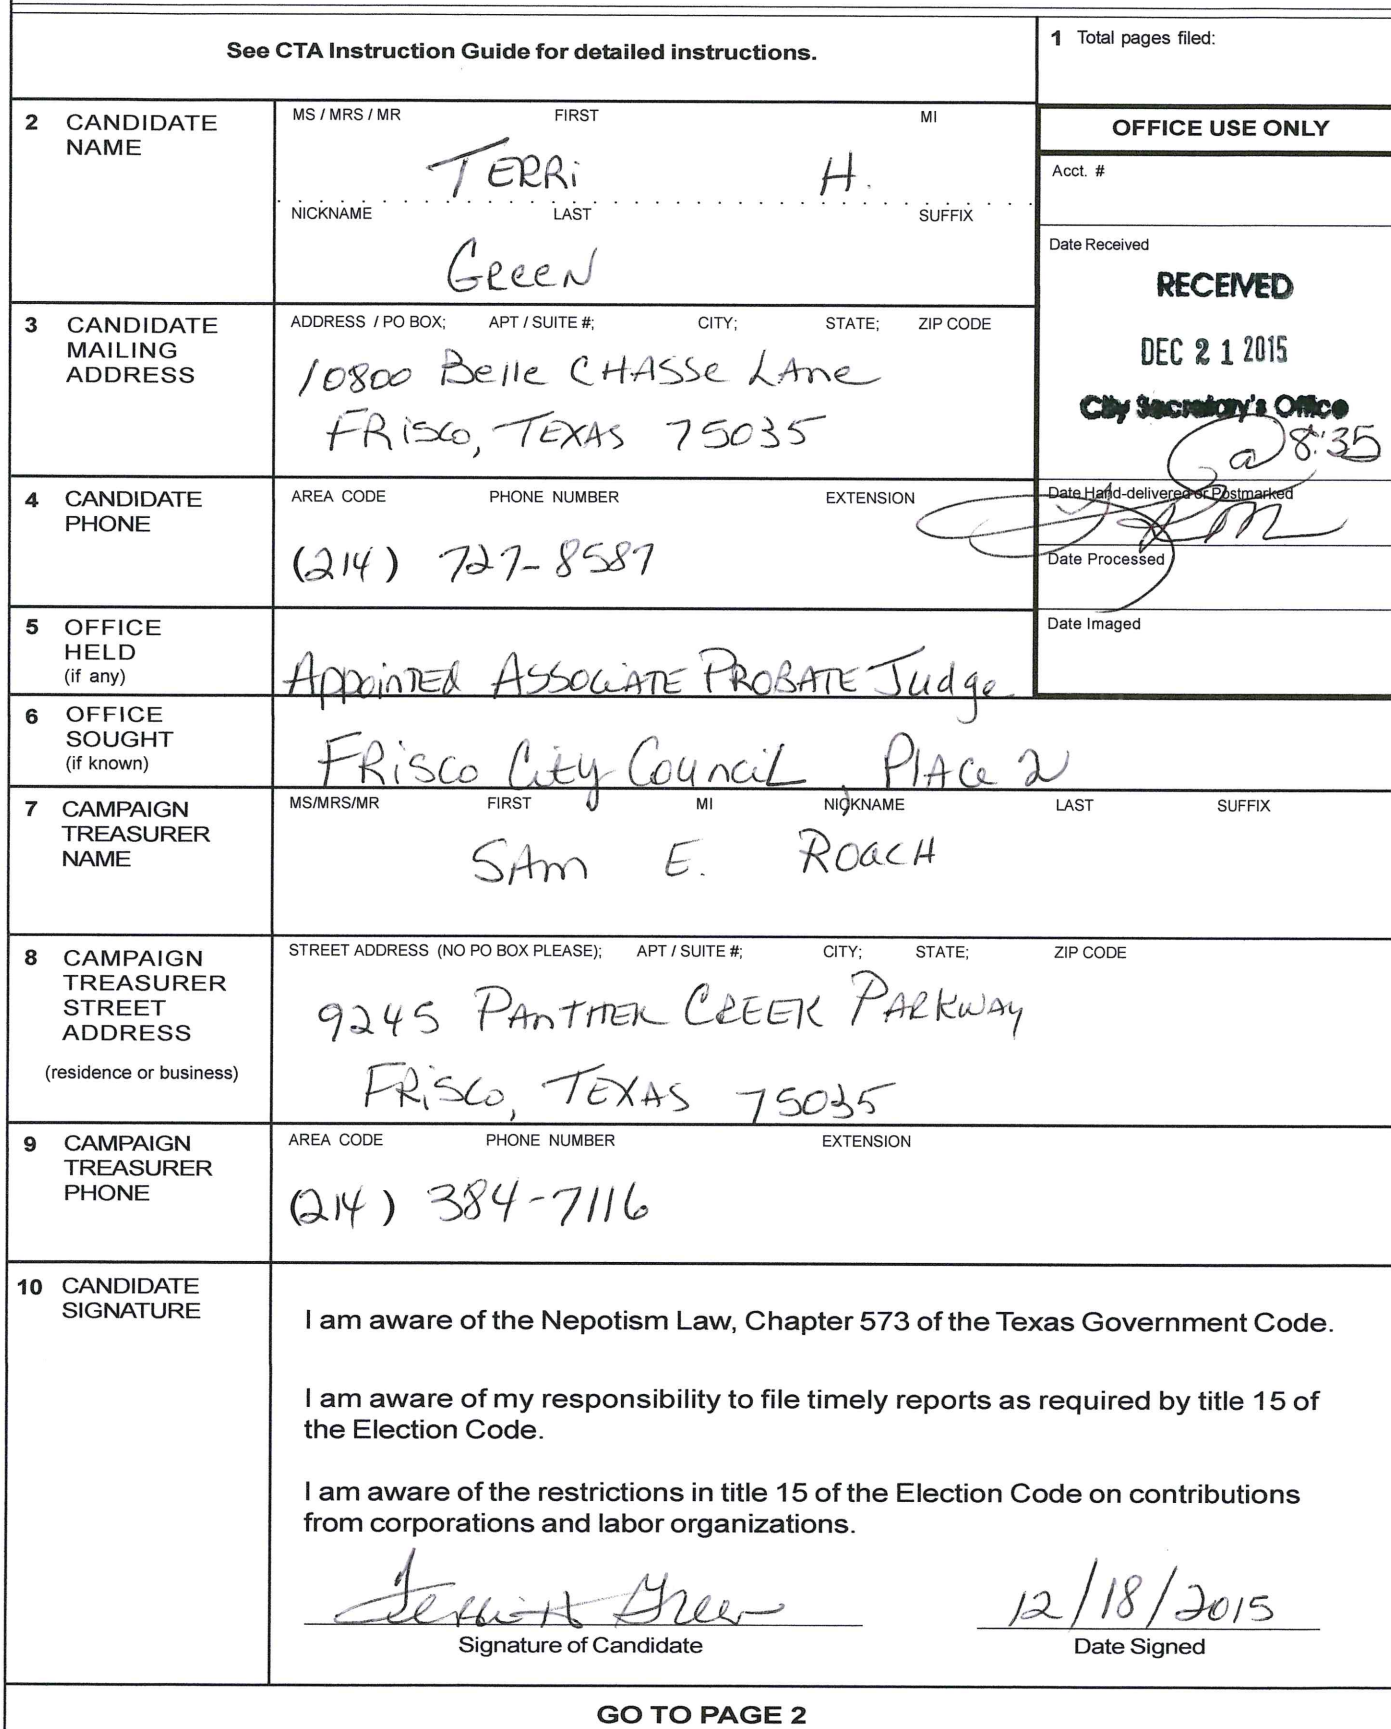 See CTA Instruction Guide for detailed instructions.
1 Total pages filed:
2 CANDIDATE NAME
MS / MRS / MR FIRST MI
TERRi H.
NICKNAME LAST SUFFIX
GReeN
OFFICE USE ONLY
Acct. #
Date Received
RECEIVED
DEC 21 2015
City Secretary's Office
@ 8:35
Date Hand-delivered or Postmarked
Date Processed
Date Imaged
3 CANDIDATE MAILING ADDRESS
ADDRESS / PO BOX; APT / SUITE #; CITY; STATE; ZIP CODE
10800 Belle CHASSe LAne
FRisco, TEXAS 75035
4 CANDIDATE PHONE
AREA CODE PHONE NUMBER EXTENSION
(214) 727-8587
5 OFFICE HELD (if any)
AppoinTEd ASSOCiATE PROBATE Judge
6 OFFICE SOUGHT (if known)
FRisco City CounciL, PlAce 2
7 CAMPAIGN TREASURER NAME
MS/MRS/MR FIRST MI NICKNAME LAST SUFFIX
SAm E. ROacH
8 CAMPAIGN TREASURER STREET ADDRESS
(residence or business)
STREET ADDRESS (NO PO BOX PLEASE); APT / SUITE #; CITY; STATE; ZIP CODE
9245 PAnTHER CREEK PARKWAy
FRiSCo, TEXAS 75035
9 CAMPAIGN TREASURER PHONE
AREA CODE PHONE NUMBER EXTENSION
(214) 384-7116
10 CANDIDATE SIGNATURE
I am aware of the Nepotism Law, Chapter 573 of the Texas Government Code.
I am aware of my responsibility to file timely reports as required by title 15 of
the Election Code.
I am aware of the restrictions in title 15 of the Election Code on contributions
from corporations and labor organizations.
Terri H Green 12/18/2015
Signature of Candidate Date Signed
GO TO PAGE 2